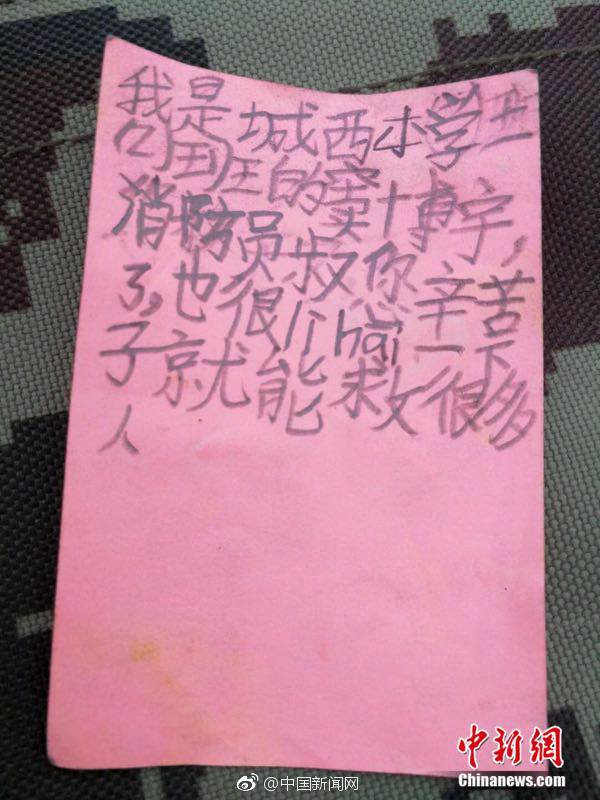 我是城西小学
班的窦博宇,
消防员叔叔你辛苦
了,也很li hai一下
子就能救很多
人
@中国新闻网
中新網
Chinanews.com